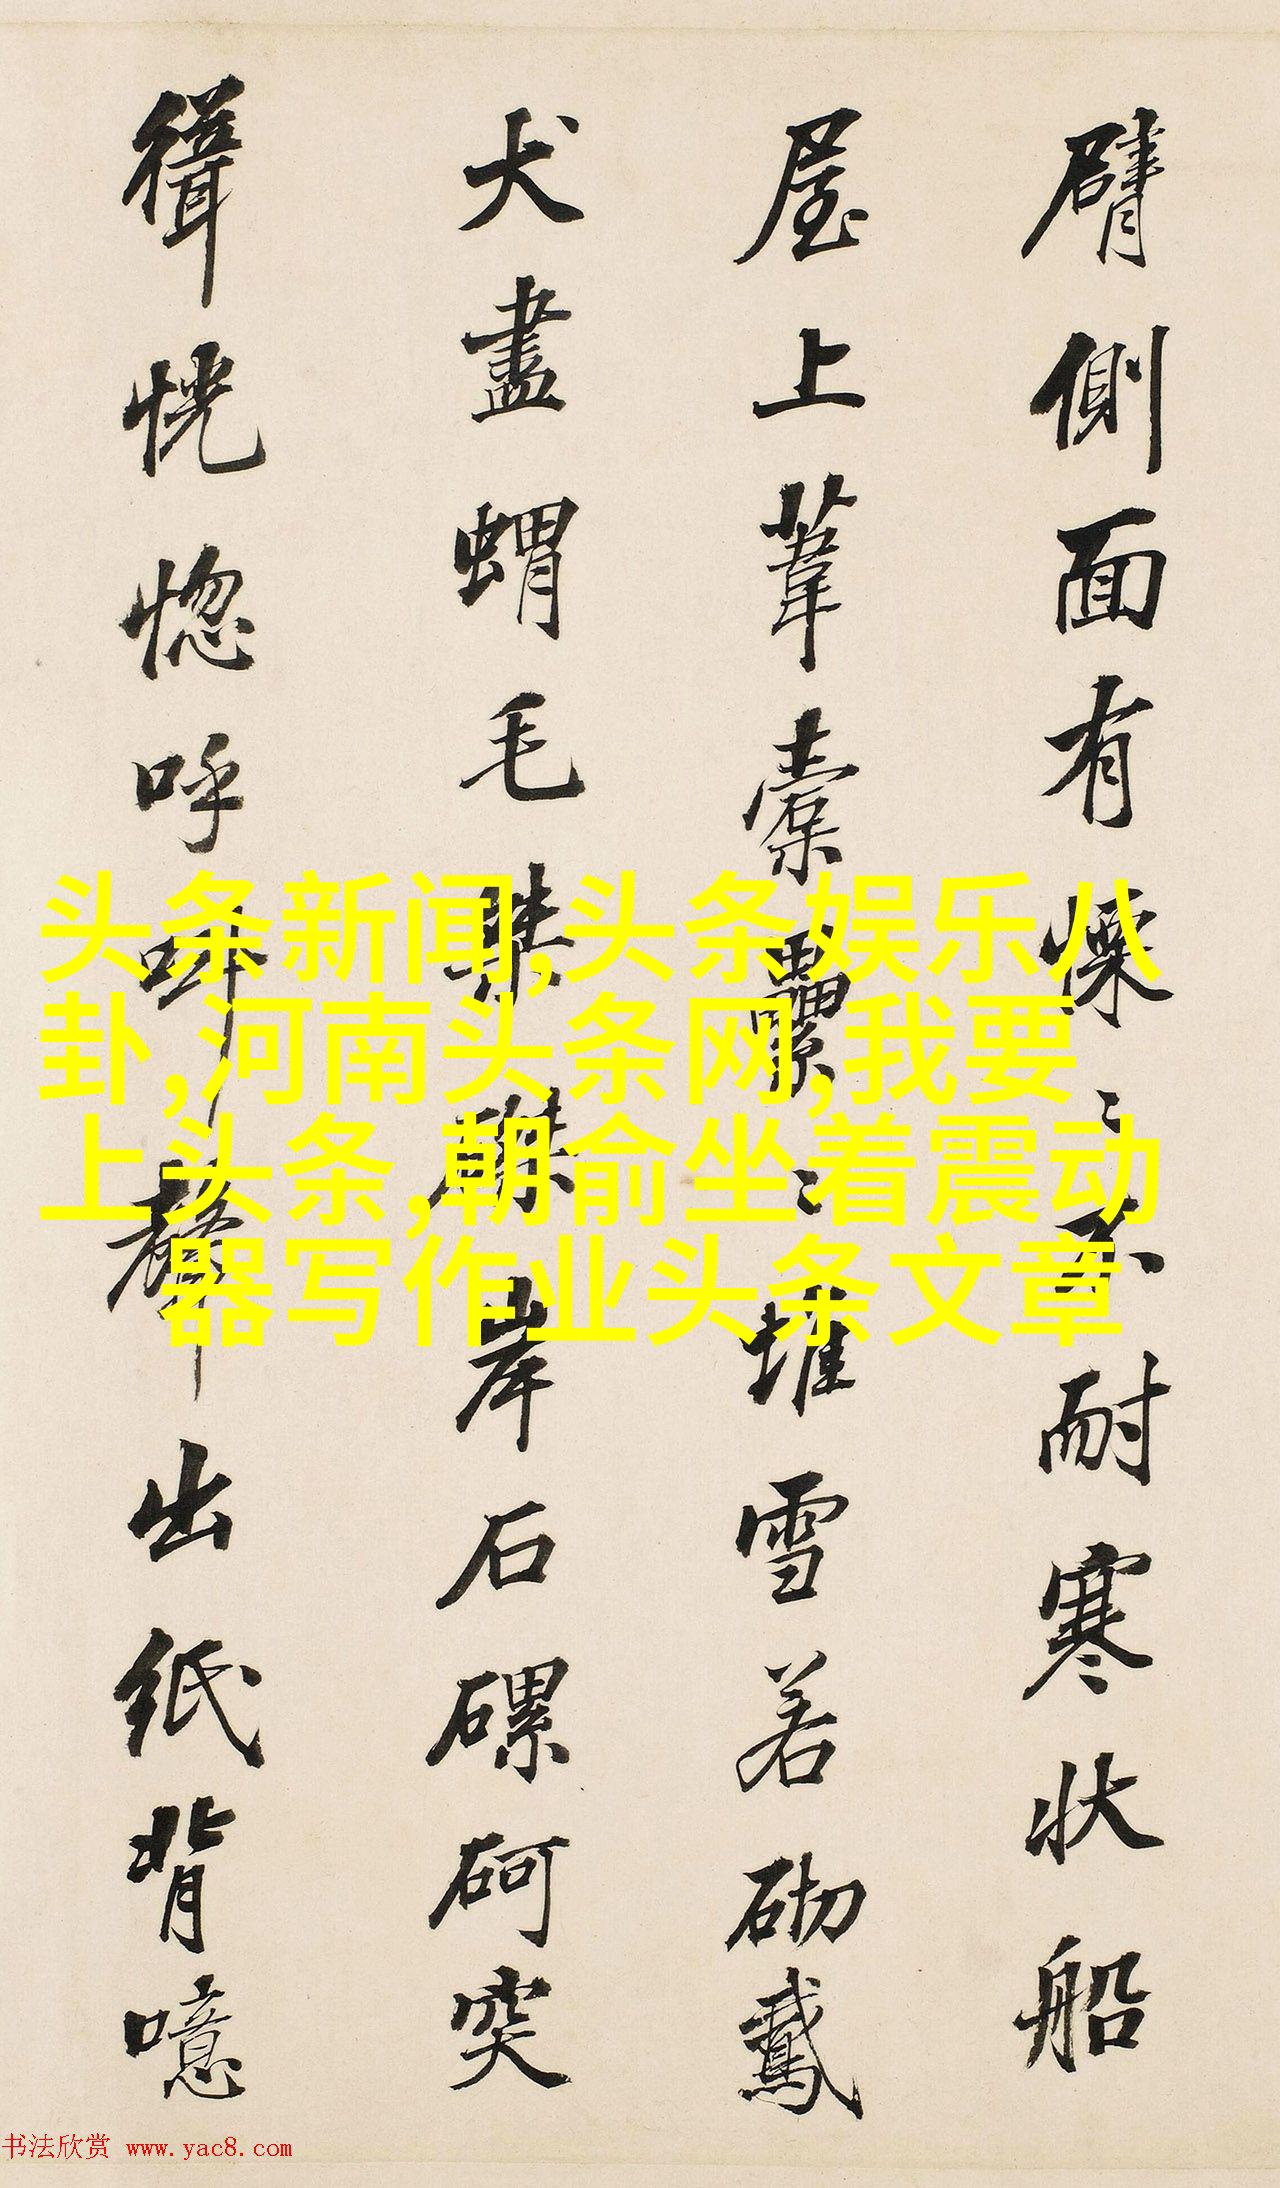 臂側面有慄〻不耐寒狀船
屋上葦橐纍〻堆雪若砌鳶
犬盡蝟毛磔磔岸石磥砢突
緝恍惚呼呷聲出紙背噫
头条新闻,头条娱乐八
卦,河南头条网,我要
上头条,朝俞坐着震动
器写作业头条文章
书法欣赏 www.yac8.com